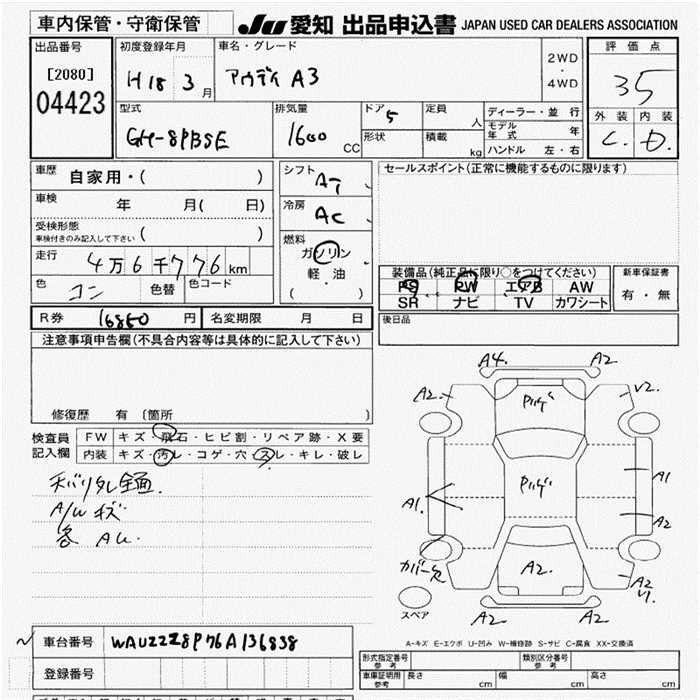 車内保管・守衛保管
JU 愛知 出品申込書 JAPAN USED CAR DEALERS ASSOCIATION
出品番号 初度登録年月 車名・グレード 評価点
[2080] H18 3月 アウディ A3 2WD・4WD 35
04423
型式 排気量 ドア 5 定員 人 ディーラー・並行 外装 内装
GH-8PBSE 1600 CC 形状 積載 kg モデル年式 年 C. D.
ハンドル 左・右
車歴 自家用・( ) シフト AT セールスポイント(正常に機能するものに限ります)
車検 年 月( 日) 冷房 AC
受検形態 ( )
車検付きのみ記入して下さい
燃料 ガソリン
走行 4万6千776km 軽・油
( )
装備品(純正品に限り○をつけてください) 新車保証書
色 コン 色替 色コード
PS PW エアB AW 有・無
SR ナビ TV カワシート
R券 16860円 名変期限 月 日 後日品
注意事項申告欄(不具合内容等は具体的に記入して下さい)
修復歴 有 〔箇所 〕
検査員記入欄 FW キズ・飛石・ヒビ割・リペア跡・X要
内装 キズ・汚レ・コゲ・穴・スレ・キレ・破レ
キズ
各 AU.
A4. A2
A2. V2.
A1
A1. A2
カバー欠 A2.
A2 V1.
スペア
A2 A2
A-キズ E-エクボ U-凹み W-補修跡 S-サビ C-腐食 XX-交換済
車台番号 WAUZZZ8P76A136838
登録番号
形式指定番号 参考 類別区分番号 参考
車庫証明用 参考 長さ cm 幅 cm 高さ cm